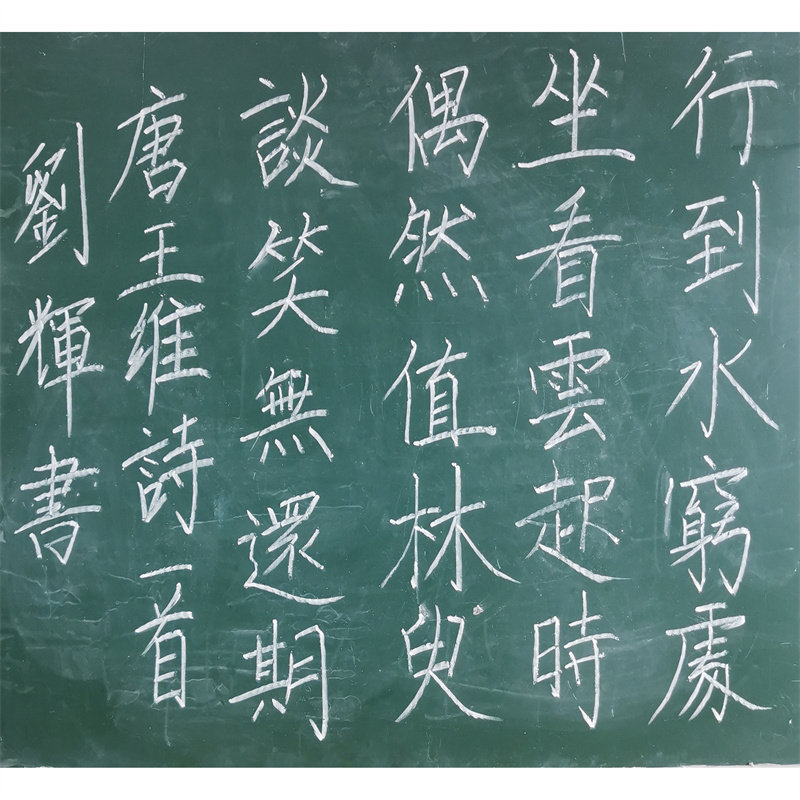 行到水窮處
坐看雲起時
偶然值林叟
談笑無還期
唐王维詩一首
劉輝書